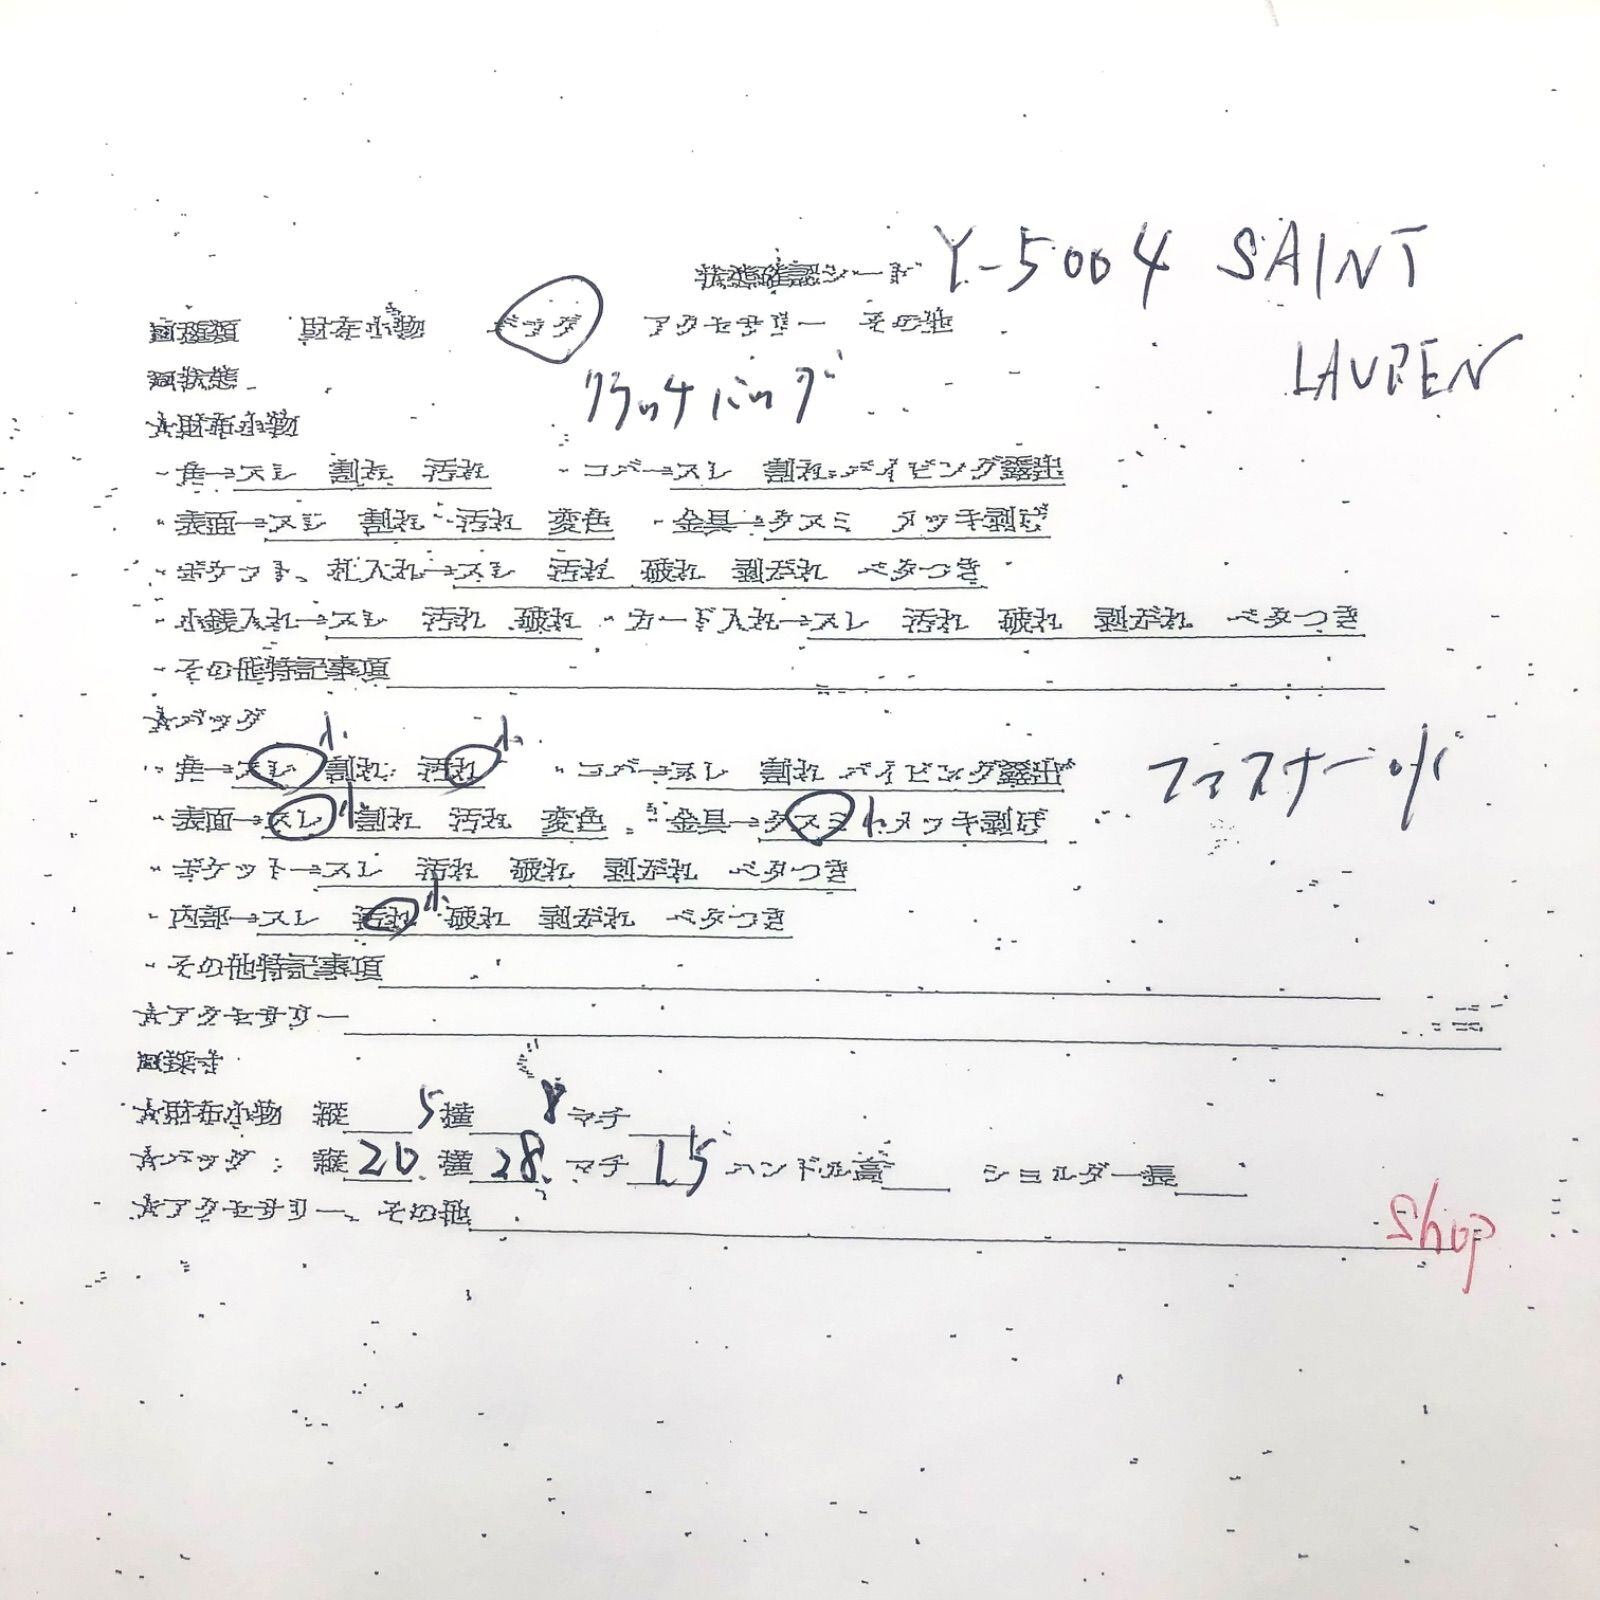 状態確認シート Y-5004 SAINT
LAUREN
□種類 財布小物 バッグ アクセサリー その他
□状態
クラッチバッグ
☆財布小物
・角→スレ 割れ 汚れ ・コバ→スレ 割れ パイピング露出
・表面→スレ 割れ 汚れ 変色 ・金具→クスミ メッキ剥げ
・ポケット、札入れ→スレ 汚れ 破れ 剥がれ ベタつき
・小銭入れ→スレ 汚れ 破れ ・カード入れ→スレ 汚れ 破れ 剥がれ ベタつき
・その他特記事項
☆バッグ
小 小
・角→スレ 割れ 汚れ ・コバ→スレ 割れ パイピング露出 ファスナー
・表面→スレ 小 割れ 汚れ 変色 ・金具→クスミ 小 メッキ剥げ
・ポケット→スレ 汚れ 破れ 剥がれ ベタつき
・内部→スレ 汚れ 小 破れ 剥がれ ベタつき
・その他特記事項
☆アクセサリー
□採寸
☆財布小物 縦 5 横 8 マチ
☆バッグ: 縦 20 横 28 マチ 1.5 ハンドル高 ショルダー長
☆アクセサリー、その他
Shop